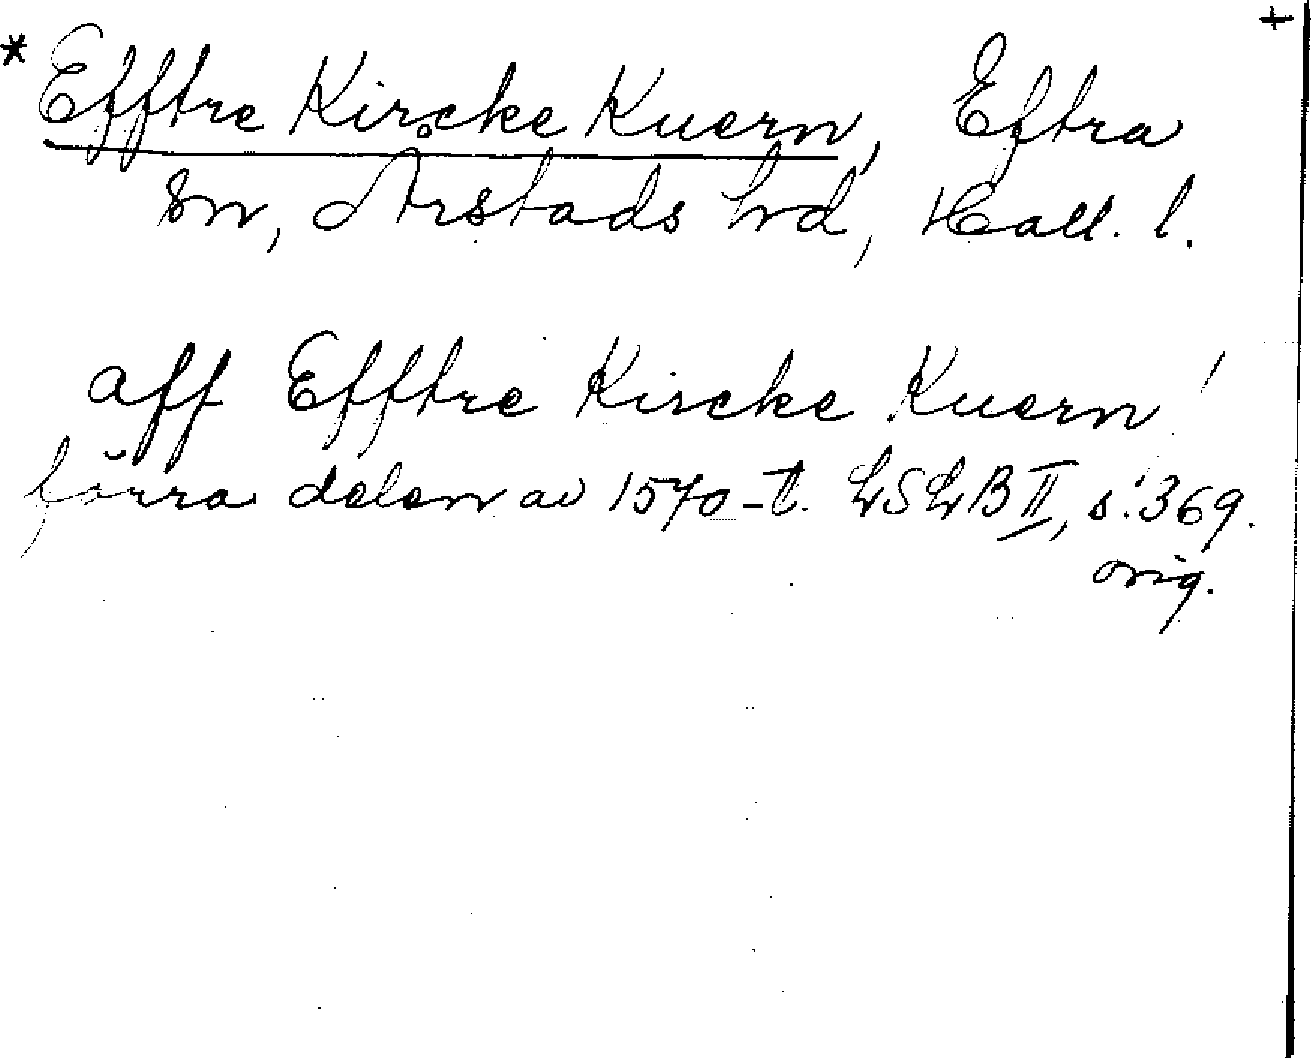 +
* Efftre Kircke Kuern, Eftra
sn, Årstads hd, Hall. l.
aff Efftre Kircke Kuern
förra delen av 1570-t. LSLB II, s. 369.
orig.